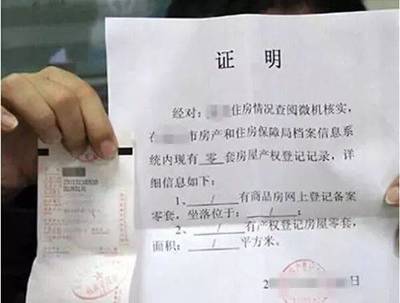 证明
经对：住房情况查阅微机核实，
在市房产和住房保障局档案信息系
统内现有 零 套房屋产权登记记录，详
细信息如下：
1、 / 有商品房网上登记备案
零套，坐落位于： / ；
2、 / 有产权登记房屋零套，
面积： / 平方米。
2 日